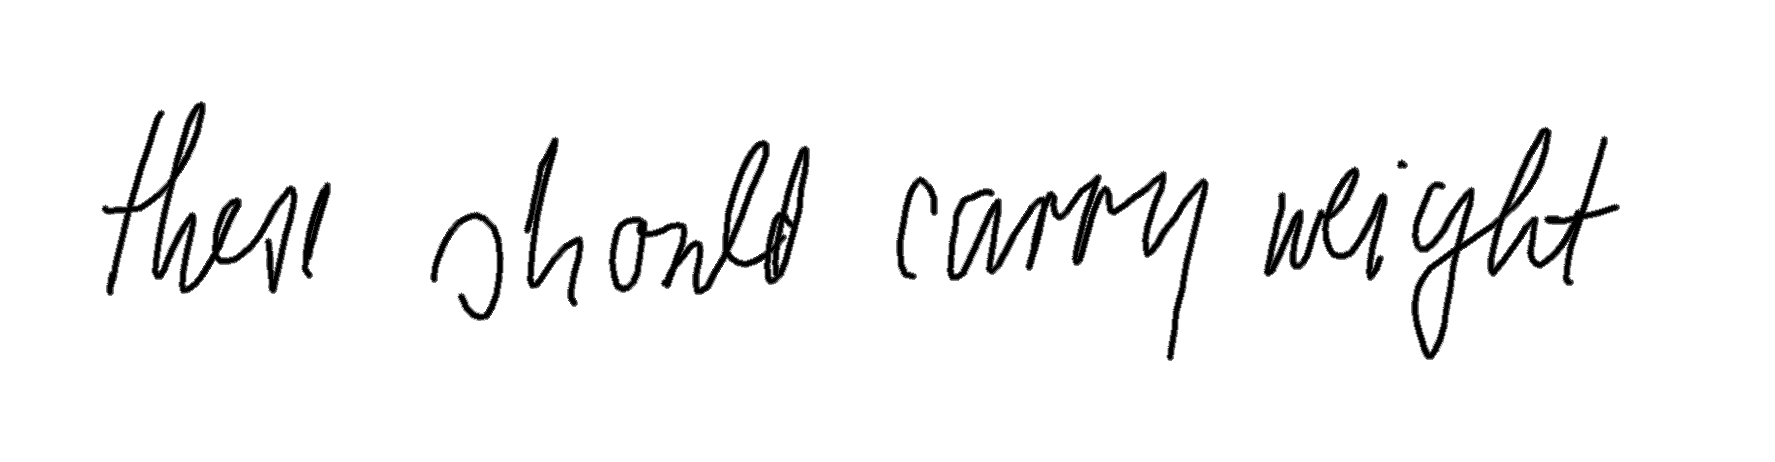 these should carry weight